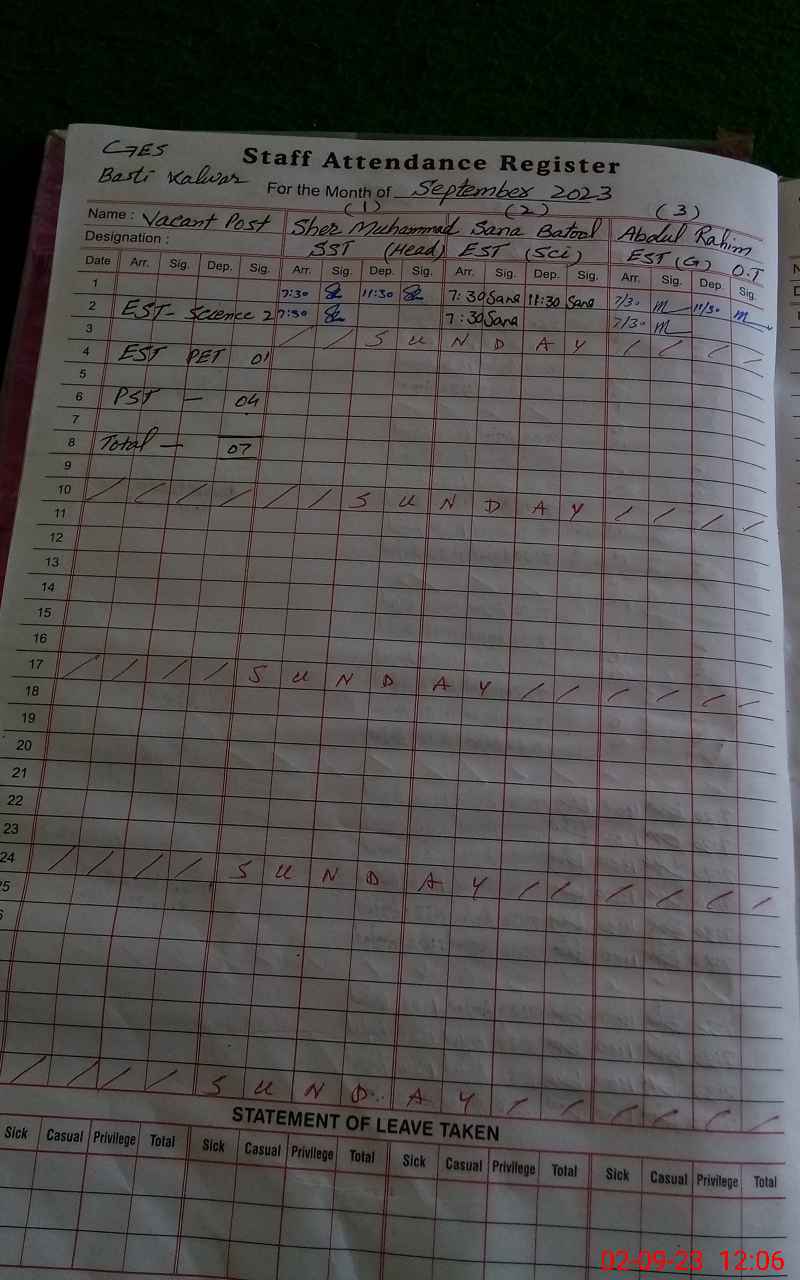 GES
Staff Attendance Register
Basti Kalwar
For the Month of September 2023
(1) (2) (3)
Name : Vacant Post Sher Muhammad Sana Batool Abdul Rahim
Designation : SST (Head) EST (Sci) EST (G) O.T
Date Arr. Sig. Dep. Sig. Arr. Sig. Dep. Sig. Arr. Sig. Dep. Sig. Arr. Sig. Dep. Sig.
1 7:30 11:30 7:30 Sana 11:30 Sana 7/30 11/30
2 EST- Science 2 7:30 7:30 Sana 7/30
3 / / S U N D A Y / / / /
4 EST PET 01
5
6 PST — 04
7
8 Total — 07
9
10 / / / / / / S U N D A Y / / / /
11
12
13
14
15
16
17 / / / / S U N D A Y / / / / / /
18
19
20
21
22
23
24 / / / / S U N D A Y / / / / / /
25
/ / / / S U N D A Y / / / / / /
STATEMENT OF LEAVE TAKEN
Sick Casual Privilege Total Sick Casual Privilege Total Sick Casual Privilege Total Sick Casual Privilege Total
02-09-23 12:06